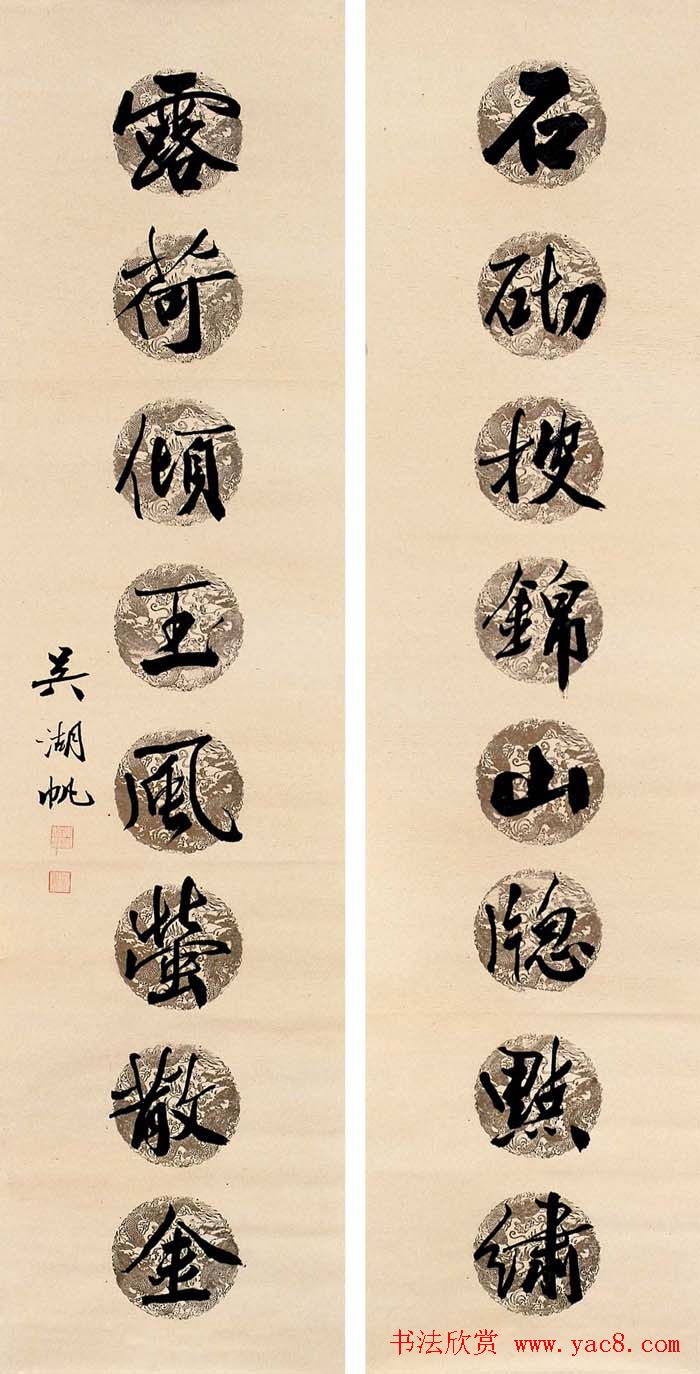 石砌搜錦山牕點繡
露荷傾玉風螢散金
吳湖帆
书法欣赏 www.yac8.com